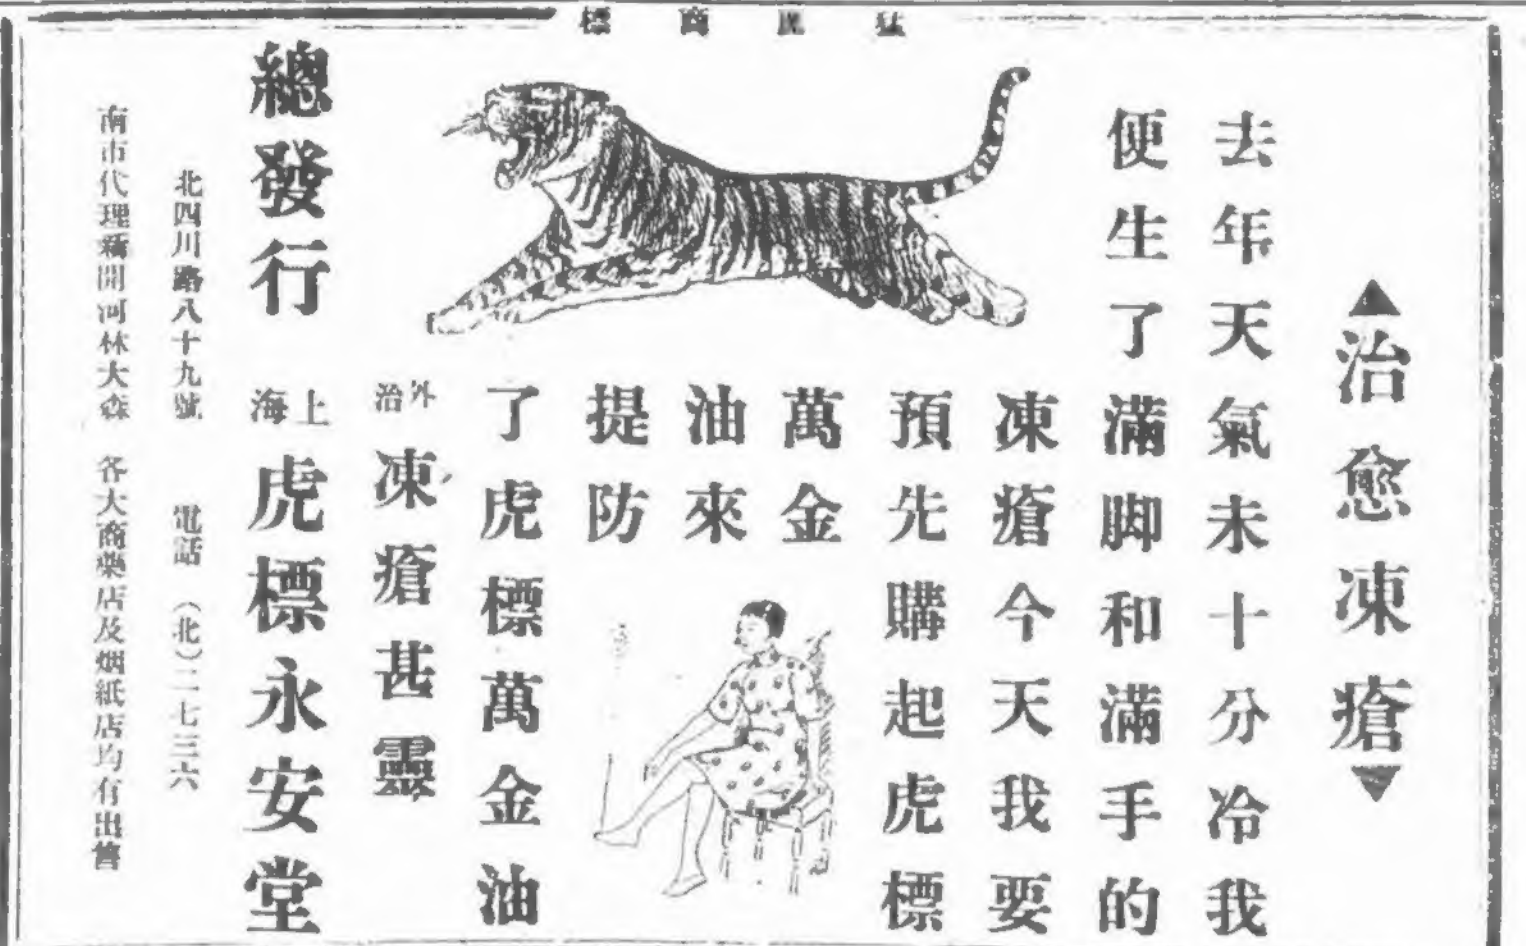 猛虎商標
▲治愈凍瘡▼
去年天氣未十分冷我
便生了滿脚和滿手的
凍瘡今天我要
預先購起虎標
萬金
油來
提防
了虎標萬金油
外治凍瘡甚靈
總發行 上海虎標永安堂
北四川路八十九號 電話（北）二七三六
南市代理新開河林大森 各大商藥店及烟紙店均有出售